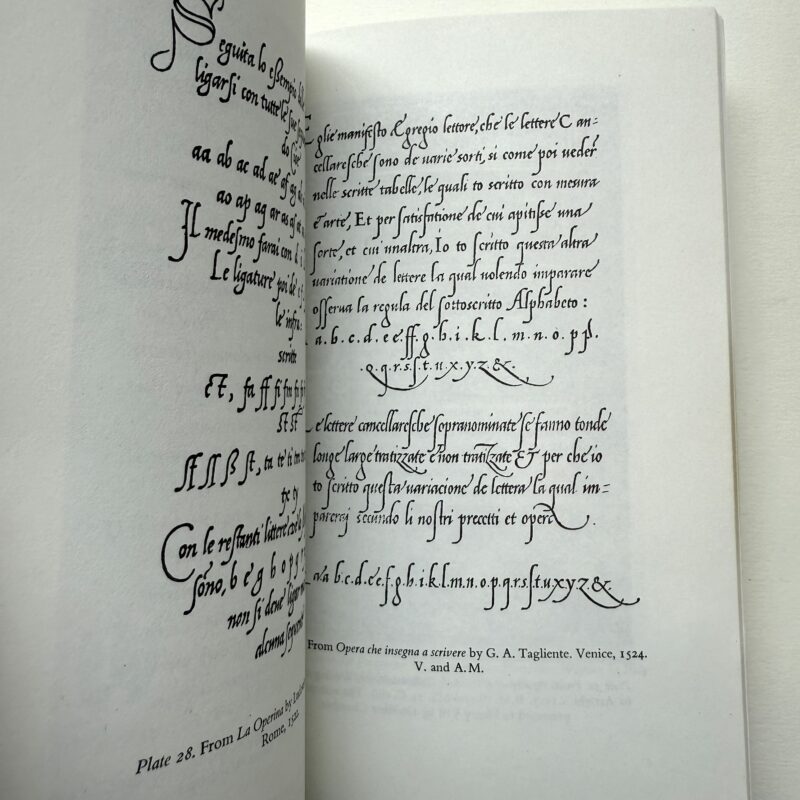 eguita lo eßempio
ligarsi con tutte le sue
aa ab ac ad ae af ag
ao ap aq ar as
Il medesmo farai con d i
Le ligature poi de
le infra
scritti
&t, fa ff fi fm
st st
ſſ ß st, ta te ti tm
tx ty
Con le restanti littere
sono, b e g h o p q
non si deve ligar
alcuna
Plate 28. From La Operina by
Rome, 1522
glie manifesto Egregio lettore, che le lettere Can=
cellaresche sono de varie sorti, si come poi veder
nelle scritte tabelle, le quali to scritto con mesura
& arte, Et per satisfatione de cui apitisse una
sorte, et cui unaltra, Io to scritto questa altra
variatione de lettere la qual volendo imparare
osserva la regula del sottoscritto Alphabeto:
a.b.c.d.e e.ff.g.h.i.k.l.m.n.o.p p.
.q.q.r.s.ſ.t.u.x.y.z.&.
e lettere cancellaresche sopranominate se fanno tonde
longe large tratizzate e non tratizzate & per che io
to scritto questa variacione de lettera la qual im=
parerai secundo li nostri precetti et opera.
a.b.c.d.e e.f.g.h.i.k.l.m.n.o.p.q.r.s.ſ.t.u.x.y.z.&.
From Opera che insegna a scrivere by G. A. Tagliente. Venice, 1524.
V. and A.M.